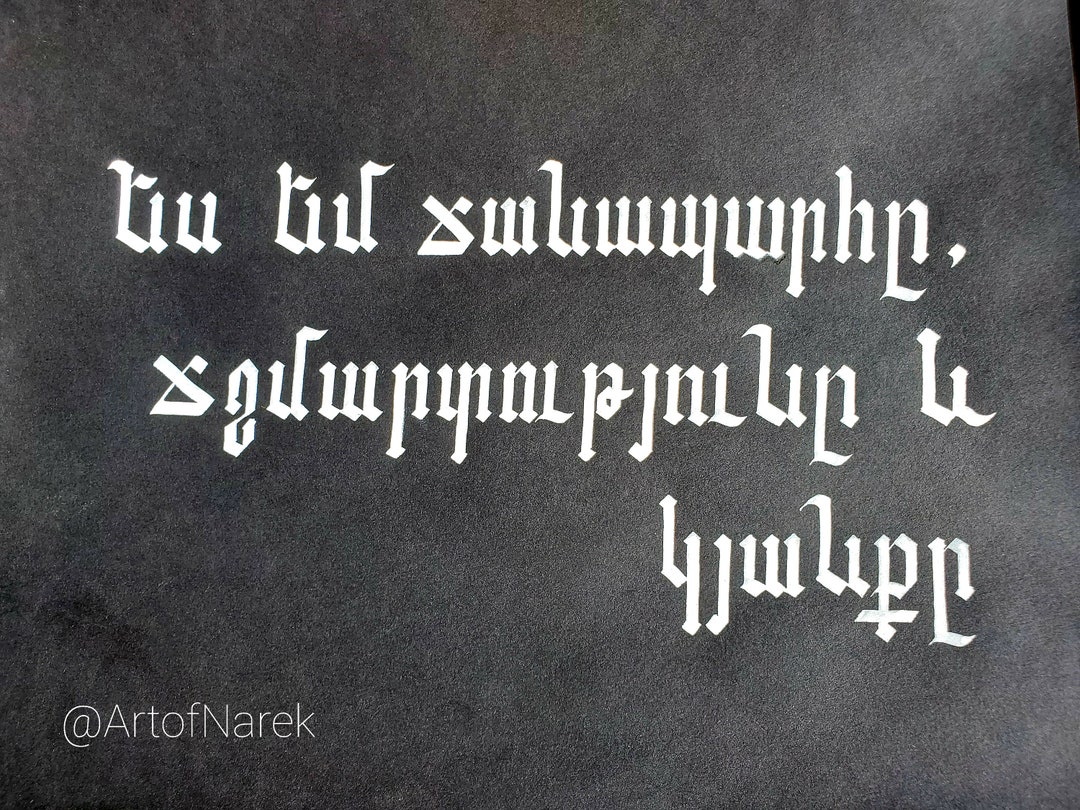 Ես եմ ճանապարհը,
ճշմարտությունը և
կյանքը
@ArtofNarek